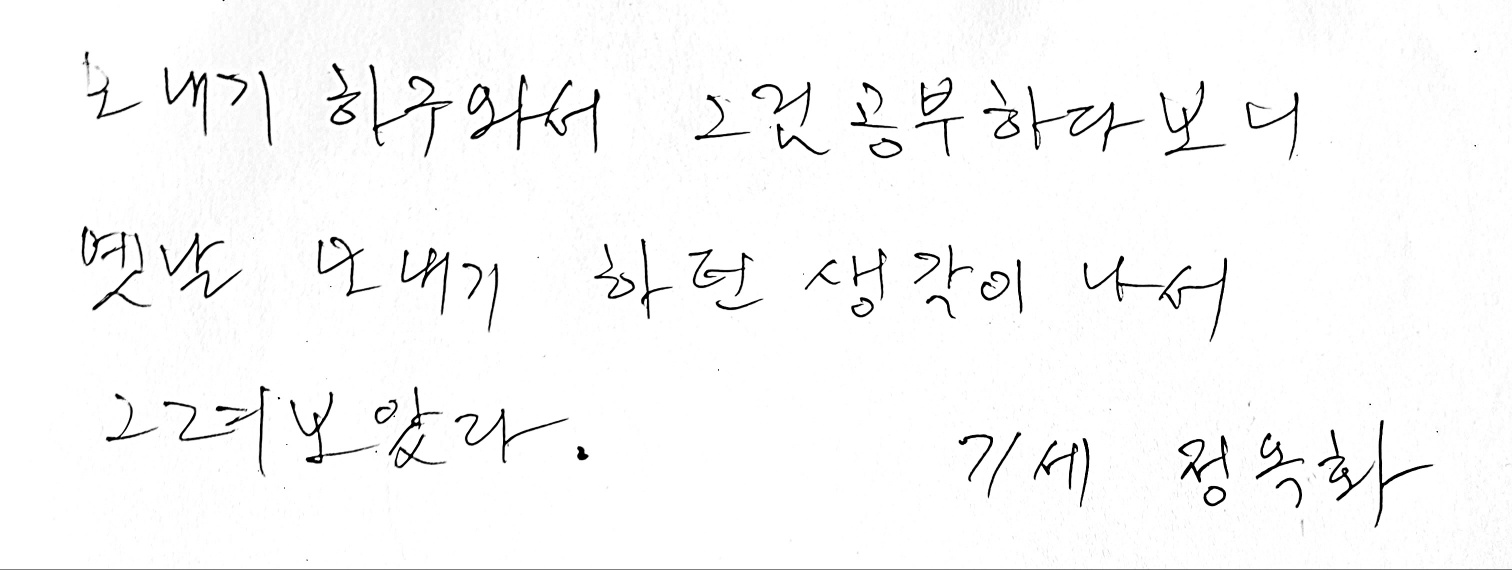 모내기 하구와서 그것 공부하다보니
옛날 모내기 하던 생각이 나서
그려보았다. 71세 정옥화